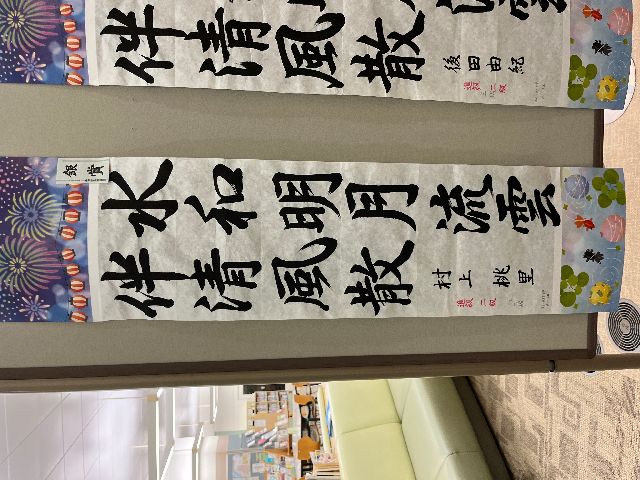 伴清風散
後田由紀
二級
銀賞
水和明月流雲
伴清風散
村上桃里
二級